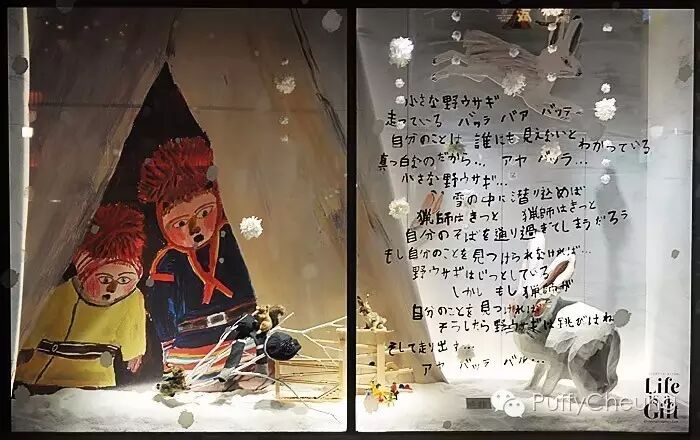 小さな野ウサギ
走っている バッテ バア バッテ
自分のことは 誰にも見えないと わかっている
真っ白なのだから... アヤ バッラ...
小さな野ウサギ...
雪の中に潜り込めば
猟師はきっと 猟師はきっと
自分のそばを通り過ぎてしまうだろう
もし自分のことを見つけられなければ...
野ウサギはじっとしている
しかし もし猟師が
自分のことを見つければ
そうしたら野ウサギは跳びはね
そして走り出す...
アヤ バッテ バル...
Life
is a
Gift
PuffyCheung